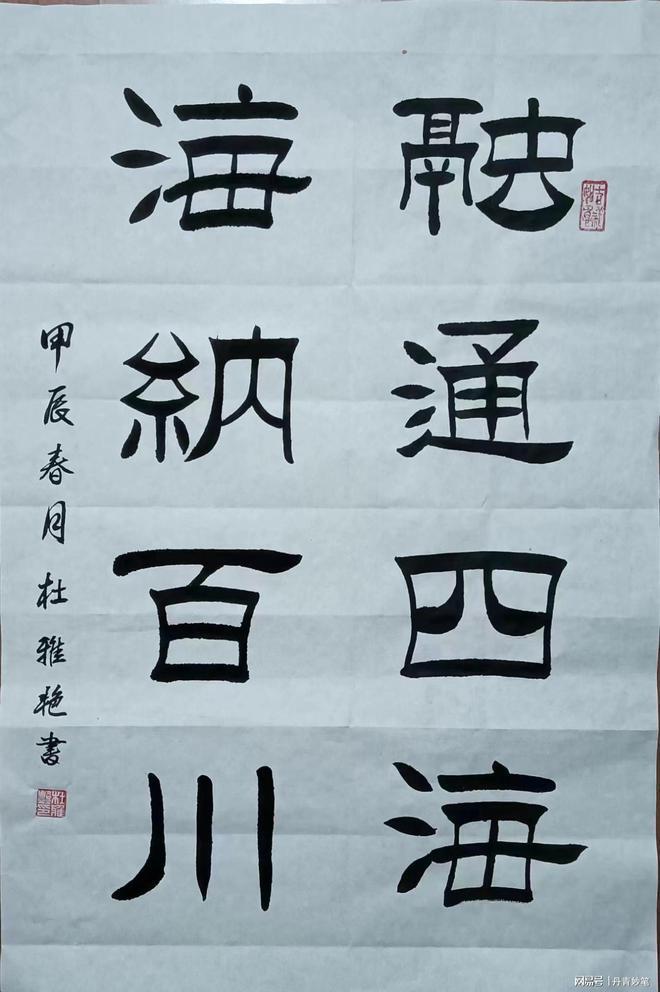 融通四海
海納百川
甲辰春月杜雅艳書
网易号 | 丹青妙笔